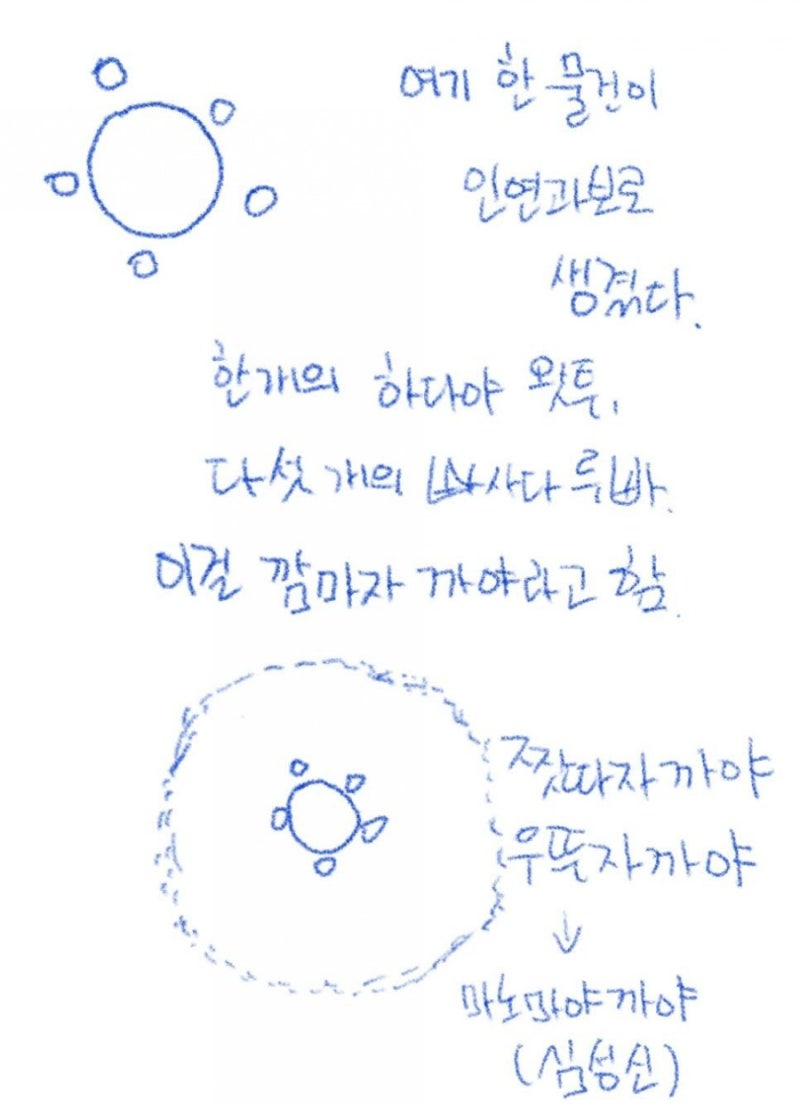 여기 한 물건이
인연과보로
생겼다.
한개의 하다야 왓투,
다섯 개의 빠사다 루빠.
이걸 깜마자 까야라고 함.
찟따자까야
우뚜자까야
↓
마노마야까야
(심성신)